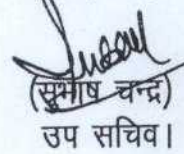 (सुभाष चन्द्र)
उप सचिव।